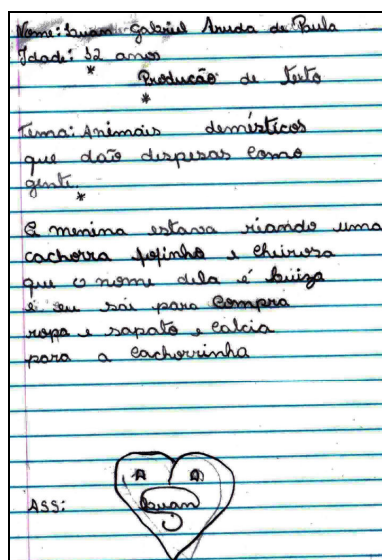 Nome: Luan Gabriel Aruda de Paula
Idade: 12 anos
*
Producão de texto
*
Tema: Animais demésticos
que daão dispesas como
gente.
*
A menina estava riando uma
cachorra fofinho e cheirosa
que o nome dela é Luiza
e eu sai para compra
ropa e sapato e calcia
para a cachorrinha
ASS: Luan